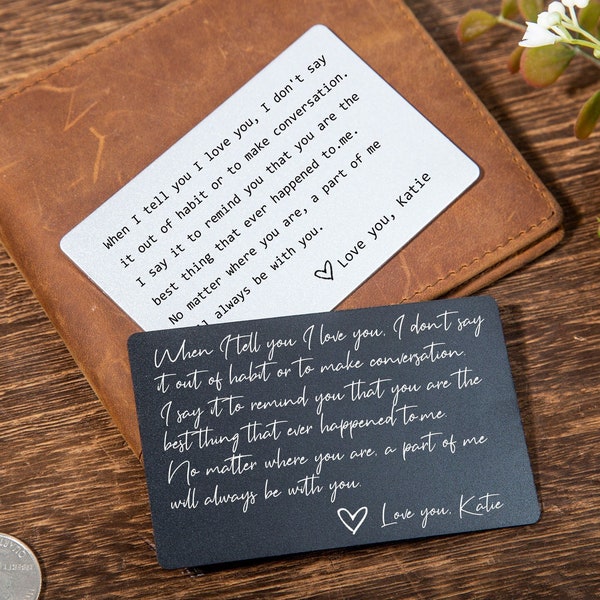 When I tell you I love you, I don't say
it out of habit or to make conversation.
I say it to remind you that you are the
best thing that ever happened to.me.
No matter where you are, a part of me
always be with you.
Love you, Katie
When I tell you I love you, I don't say
it out of habit or to make conversation.
I say it to remind you that you are the
best thing that ever happened to me.
No matter where you are, a part of me
will always be with you.
Love you, Katie